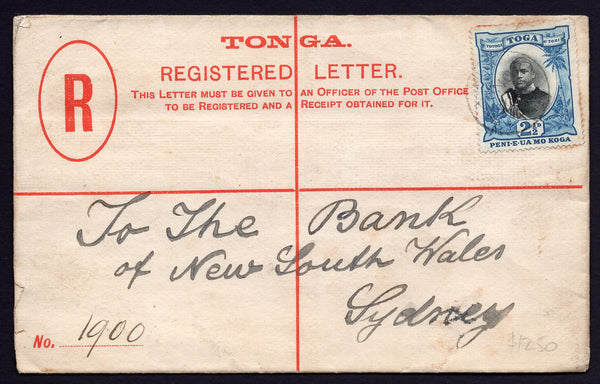 TONGA.
REGISTERED LETTER.
THIS LETTER MUST BE GIVEN TO AN OFFICER OF THE POST OFFICE
TO BE REGISTERED AND A RECEIPT OBTAINED FOR IT.
R
TOGA
2½
PENI·E·UA MO KOGA
To The Bank
of New South Wales
Sydney
No. 1900
$1250